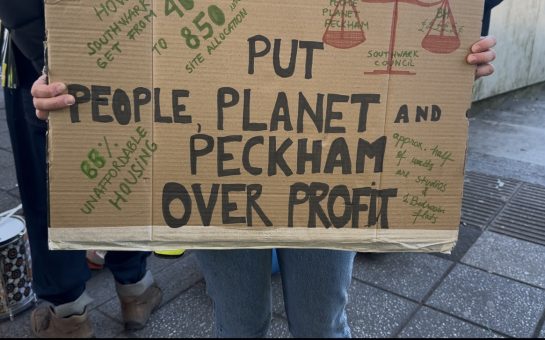 HOW
SOUTHWARK
GET FROM
40
TO 850
SITE ALLOCATION
PEOPLE
PLANET
PECKHAM
££££
SOUTHWARK
COUNCIL
PUT
PEOPLE, PLANET AND
PECKHAM
OVER PROFIT
68%
UNAFFORDABLE
HOUSING
approx. half
of units
are studios
&
bedroom
flats